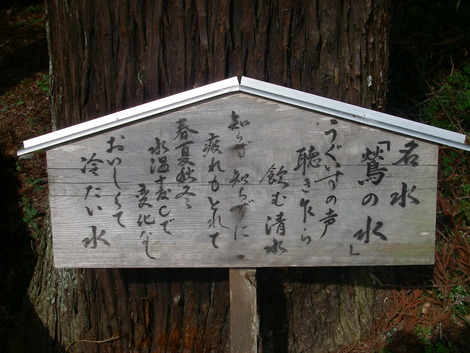 名水
「鶯の水」
うぐいすの声
聴きながら
飲む清水
知らず知らずに
疲れもとれて
春夏秋冬
水温などで
変化なし
おいしくて
冷たい水